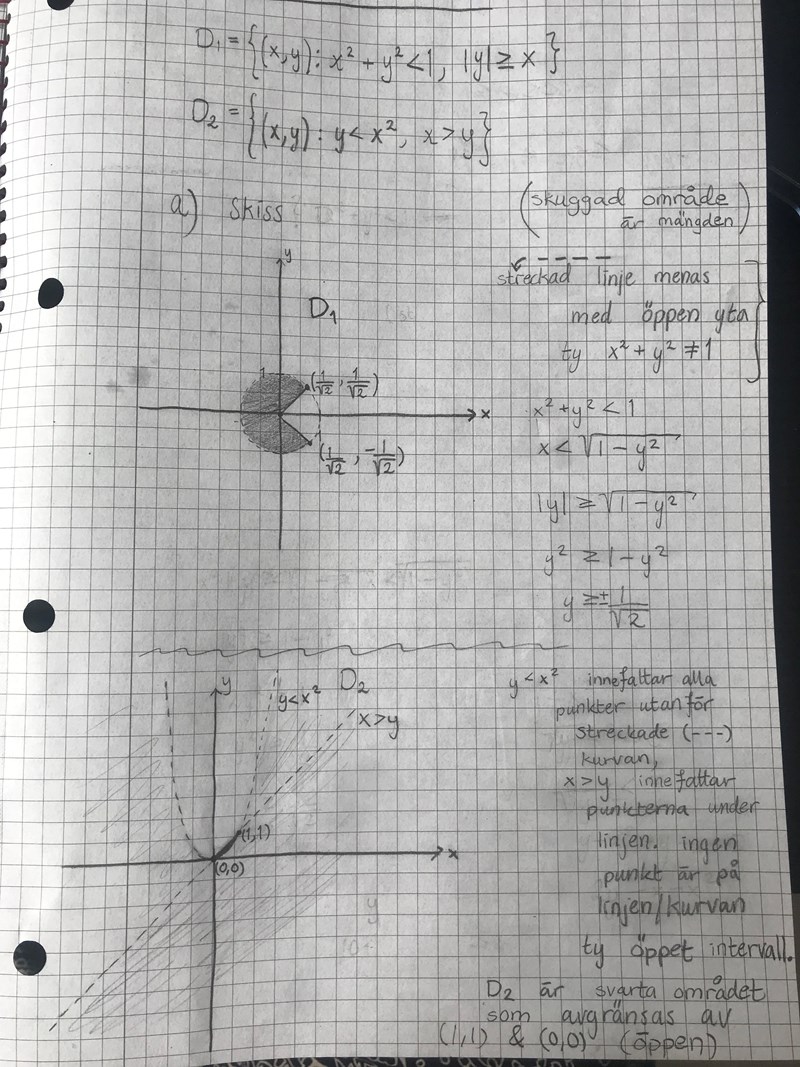 D₁ = {(x,y): x² + y² < 1, |y| ≥ x}
D₂ = {(x,y): y < x², x > y}
a) Skiss
(skuggad område
är mängden)
streckad linje menas
med öppen yta
ty x² + y² ≠ 1
y
D₁
1
(1/√2, 1/√2)
x
1
(1/√2, -1/√2)
x² + y² < 1
x < √(1 - y²)
|y| ≥ √(1 - y²)
y² ≥ 1 - y²
y ≥ ± 1/√2
y
y < x²
D₂
x > y
(1,1)
x
(0,0)
y < x² innefattar alla
punkter utanför
streckade (---)
kurvan,
x > y innefattar
punkterna under
linjen. ingen
punkt är på
linjen/kurvan
ty öppet intervall.
D₂ är svarta området
som avgränsas av
(1,1) & (0,0) (öppen)